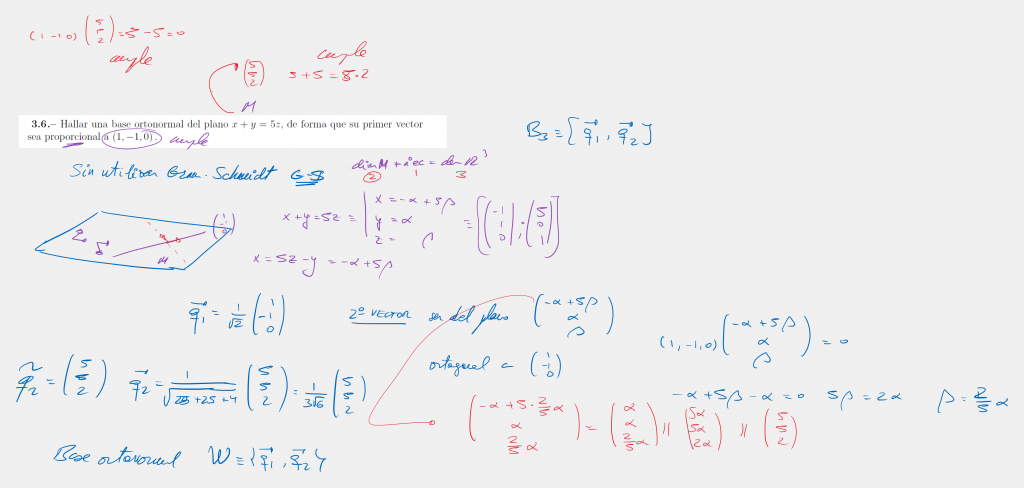 (1 -1 0) (5 5 2) = 5 - 5 = 0
cumple
cumple
(5 5 2) 5 + 5 = 5·2
M
3.6.– Hallar una base ortonormal del plano x + y = 5z, de forma que su primer vector
sea proporcional a (1, −1, 0). cumple
B₃ ≡ {q⃗₁, q⃗₂}
Sin utilizar Gram-Schmidt G-S
dim M + nº ec = dim ℝ³
2 1 3
x + y = 5z ≡ | x = -α + 5β
y = α
z = β
≡ [(-1 1 0) ; (5 0 1)]
x = 5z - y = -α + 5β
(1 -1 0)
M
q⃗₁ = 1/√2 (1 -1 0)
2º VECTOR ser del plano (-α + 5β α β)
ortogonal a (1 -1 0)
(1, -1, 0) (-α + 5β α β) = 0
-α + 5β - α = 0 5β = 2α β = 2/5 α
q̃₂ = (5 5 2) q⃗₂ = 1/√(25 + 25 + 4) (5 5 2) = 1/(3√6) (5 5 2)
(-α + 5·2/5 α α 2/5 α) = (α α 2/5 α) || (5α 5α 2α) || (5 5 2)
Base ortonormal W ≡ {q⃗₁, q⃗₂}